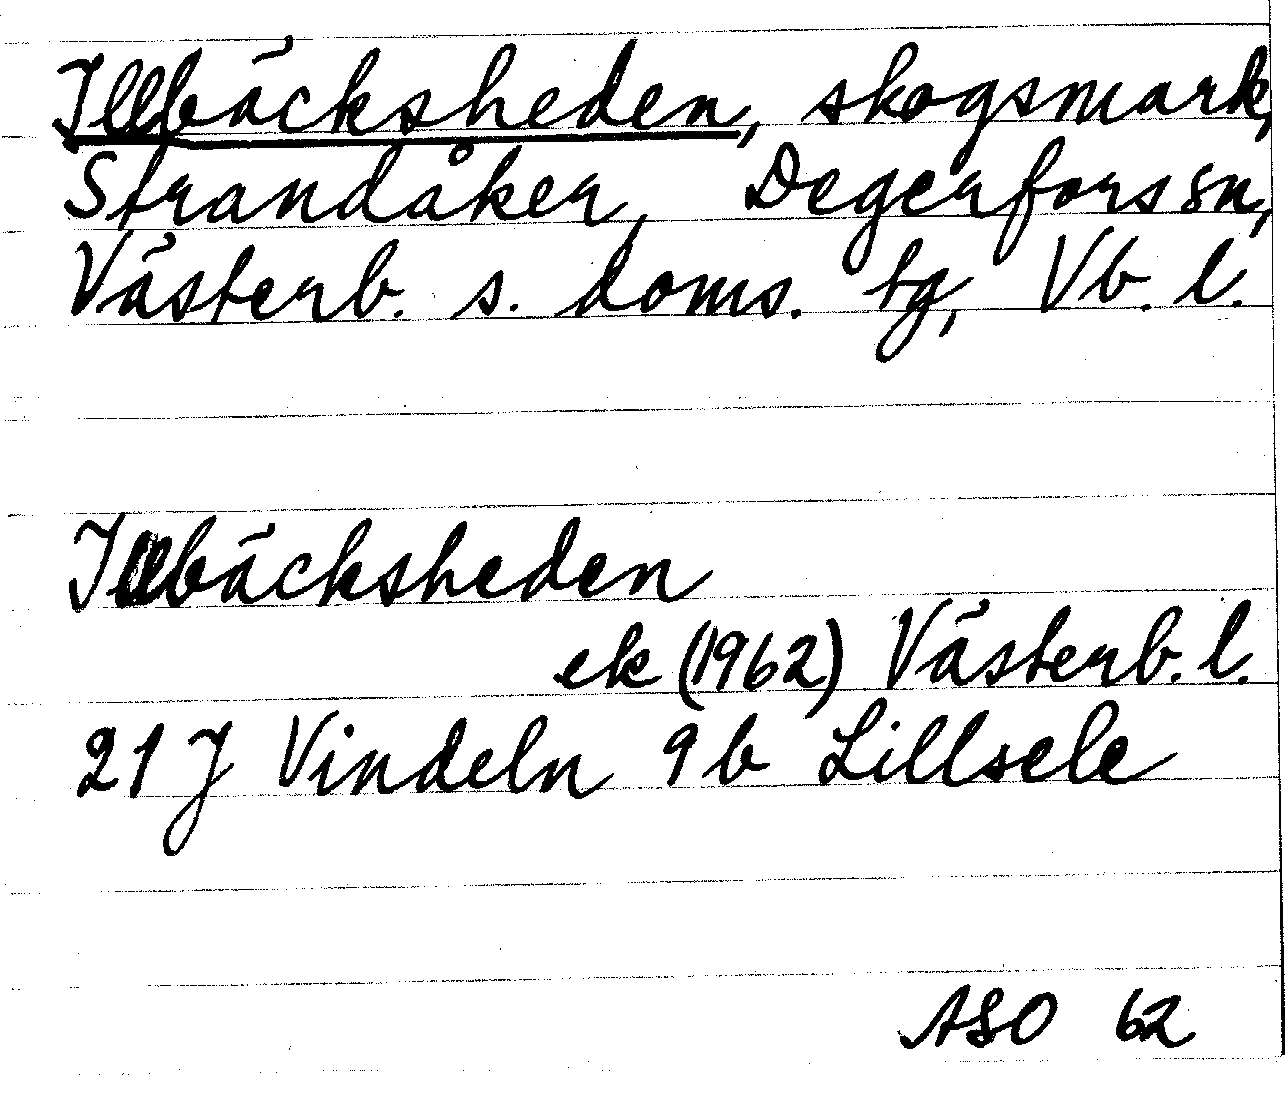 Illbäcksheden, skogsmark,
Strandåker, Degerfors sn,
Västerb. s. doms. tg, Vb. l.
Illbäcksheden
ek (1962) Västerb. l.
21 J Vindeln 9b Lillsele
ASO 62